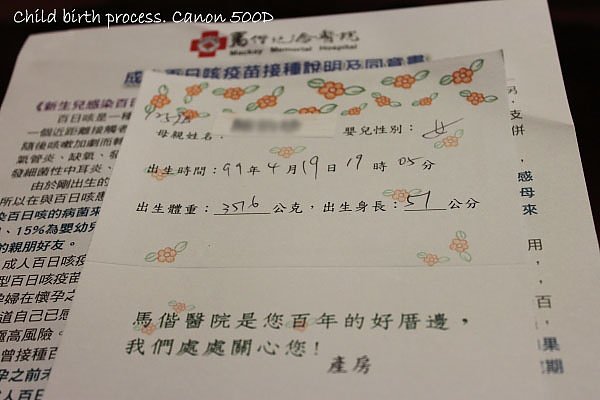 Child birth process. Canon 500D
馬偕紀念醫院
Mackay Memorial Hospital
成 百日咳疫苗接種說明及同意書
《新生兒感染百日
百日咳是一種
一個近距離接觸者
隨後咳嗽加劇而轉
氣管炎、缺氧、發
發細菌性中耳炎、
由於剛出生的
所以在與百日咳患
染百日咳的病菌來
、15%為嬰幼兒
的親朋好友。
成人百日咳疫苗
型百日咳疫苗
孕婦在懷孕之
道自己已感
極高風險。
曾接種百
孕之前未
人百日
母親姓名: 嬰兒性別: 女
出生時間:99年4月19日19時05分
出生體重:3516公克,出生身長:51公分
馬偕醫院是您百年的好厝邊,
我們處處關心您!
產房
支併
,感
母來
用,
,百,
果
期